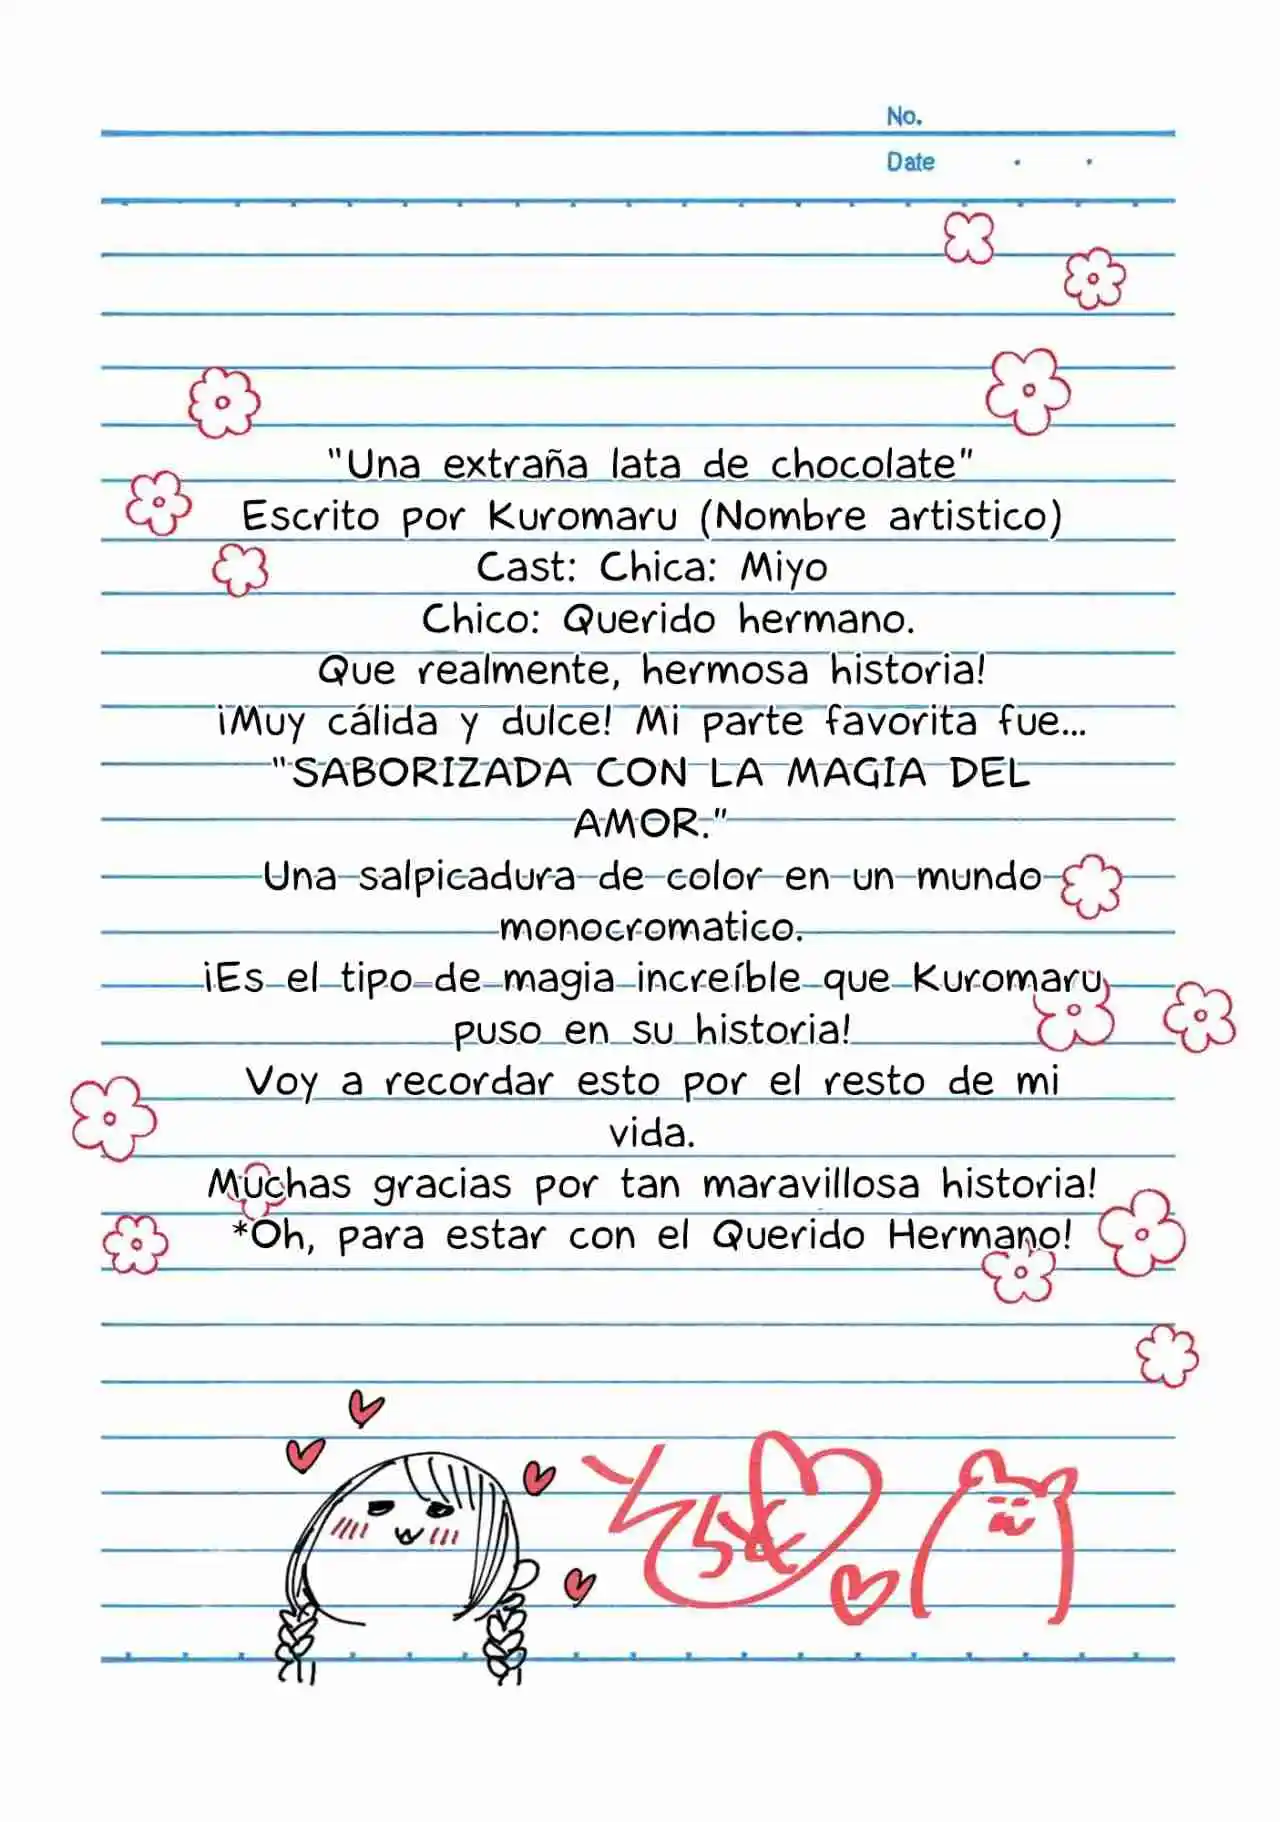 No.
Date
"Una extraña lata de chocolate"
Escrito por Kuromaru (Nombre artistico)
Cast: Chica: Miyo
Chico: Querido hermano.
Que realmente, hermosa historia!
¡Muy cálida y dulce! Mi parte favorita fue...
"SABORIZADA CON LA MAGIA DEL
AMOR."
Una salpicadura de color en un mundo
monocromatico.
¡Es el tipo de magia increíble que Kuromaru
puso en su historia!
Voy a recordar esto por el resto de mi
vida.
Muchas gracias por tan maravillosa historia!
*Oh, para estar con el Querido Hermano!